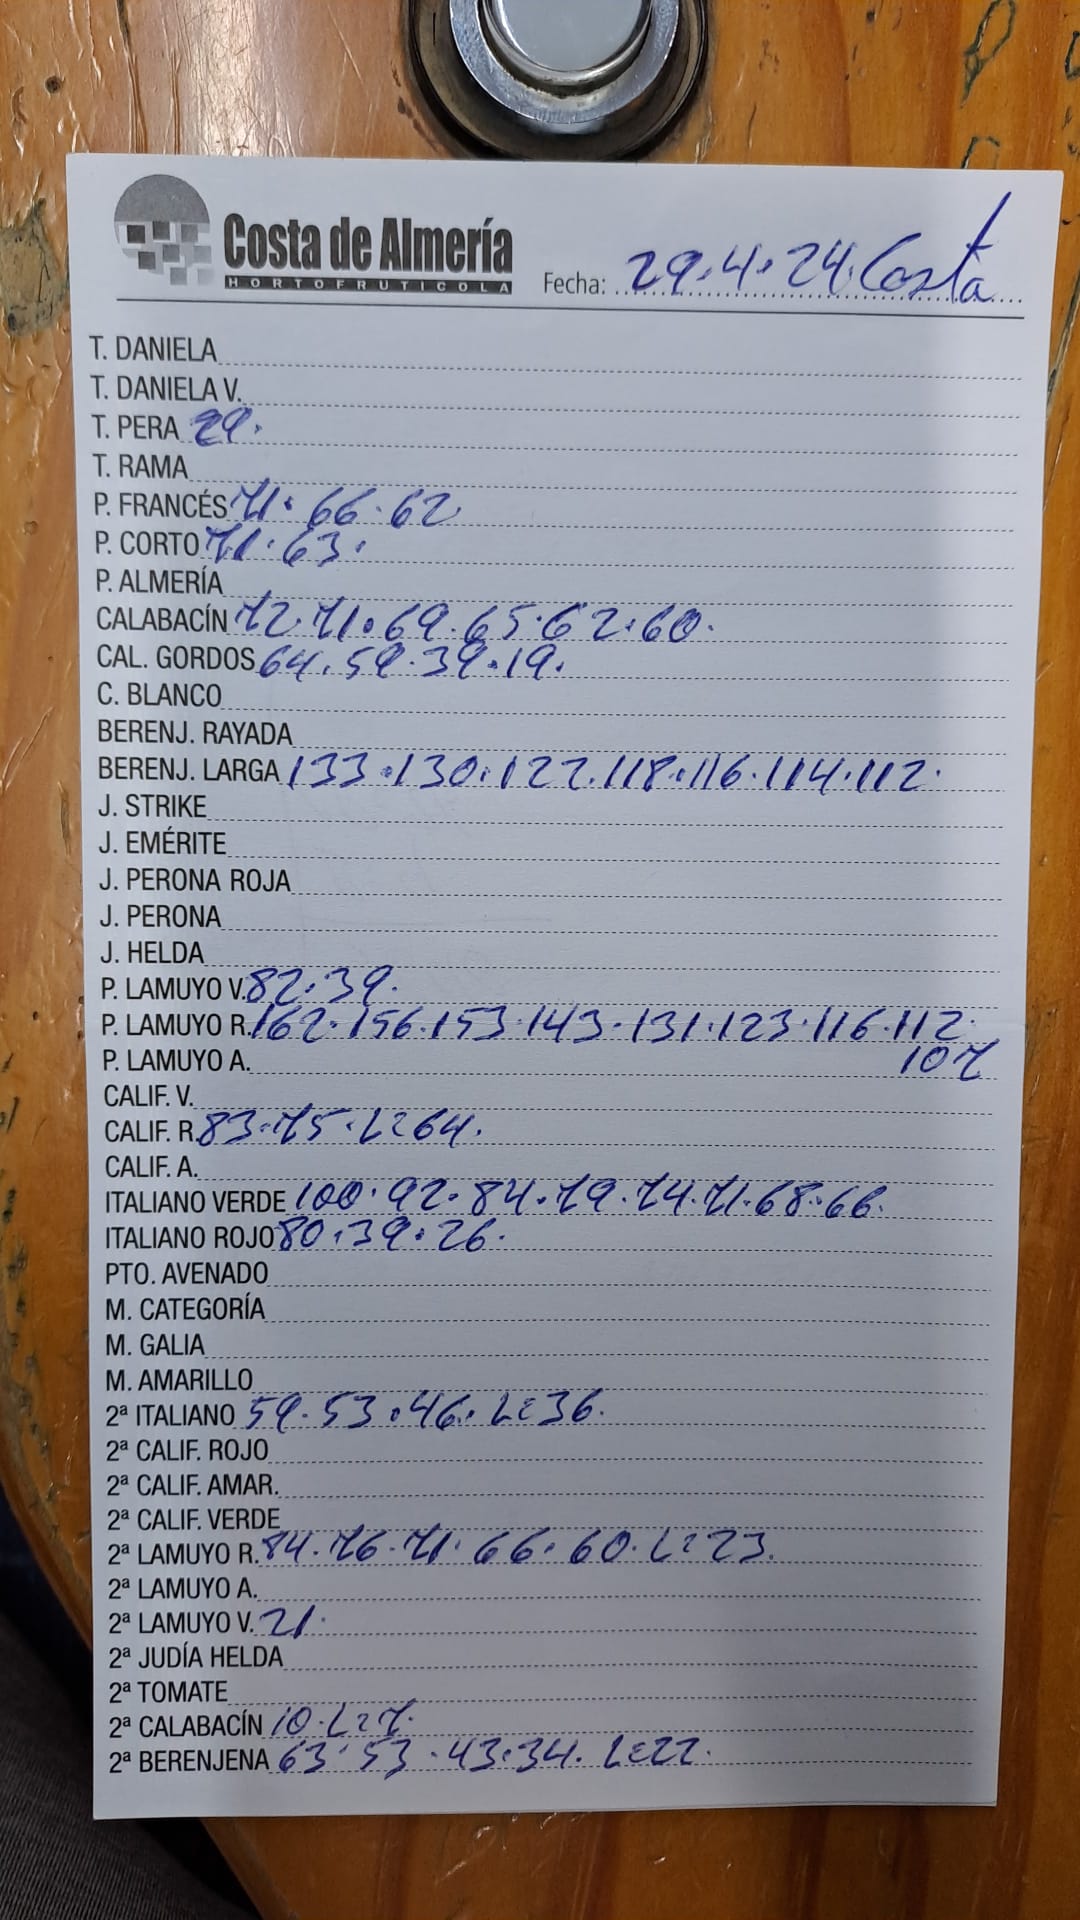 Costa de Almería
HORTOFRUTICOLA
Fecha: 29.4.24. Costa
T. DANIELA
T. DANIELA V.
T. PERA 29.
T. RAMA
P. FRANCÉS 71. 66. 62
P. CORTO 71. 63.
P. ALMERÍA
CALABACÍN 72. 71. 69. 65. 62. 60.
CAL. GORDOS 64. 59. 39. 19.
C. BLANCO
BERENJ. RAYADA
BERENJ. LARGA 133. 130. 122. 118. 116. 114. 112.
J. STRIKE
J. EMÉRITE
J. PERONA ROJA
J. PERONA
J. HELDA
P. LAMUYO V. 82. 39.
P. LAMUYO R. 162. 156. 153. 143. 131. 123. 116. 112.
P. LAMUYO A. 107
CALIF. V.
CALIF. R. 83. 75. L=64.
CALIF. A.
ITALIANO VERDE 100. 92. 84. 79. 74. 71. 68. 66.
ITALIANO ROJO 80. 39. 26.
PTO. AVENADO
M. CATEGORÍA
M. GALIA
M. AMARILLO
2ª ITALIANO 59. 53. 46. L=36.
2ª CALIF. ROJO
2ª CALIF. AMAR.
2ª CALIF. VERDE
2ª LAMUYO R. 84. 76. 71. 66. 60. L=23.
2ª LAMUYO A.
2ª LAMUYO V. 21.
2ª JUDÍA HELDA
2ª TOMATE
2ª CALABACÍN 10. L=7.
2ª BERENJENA 63. 53. 43. 34. L=22.